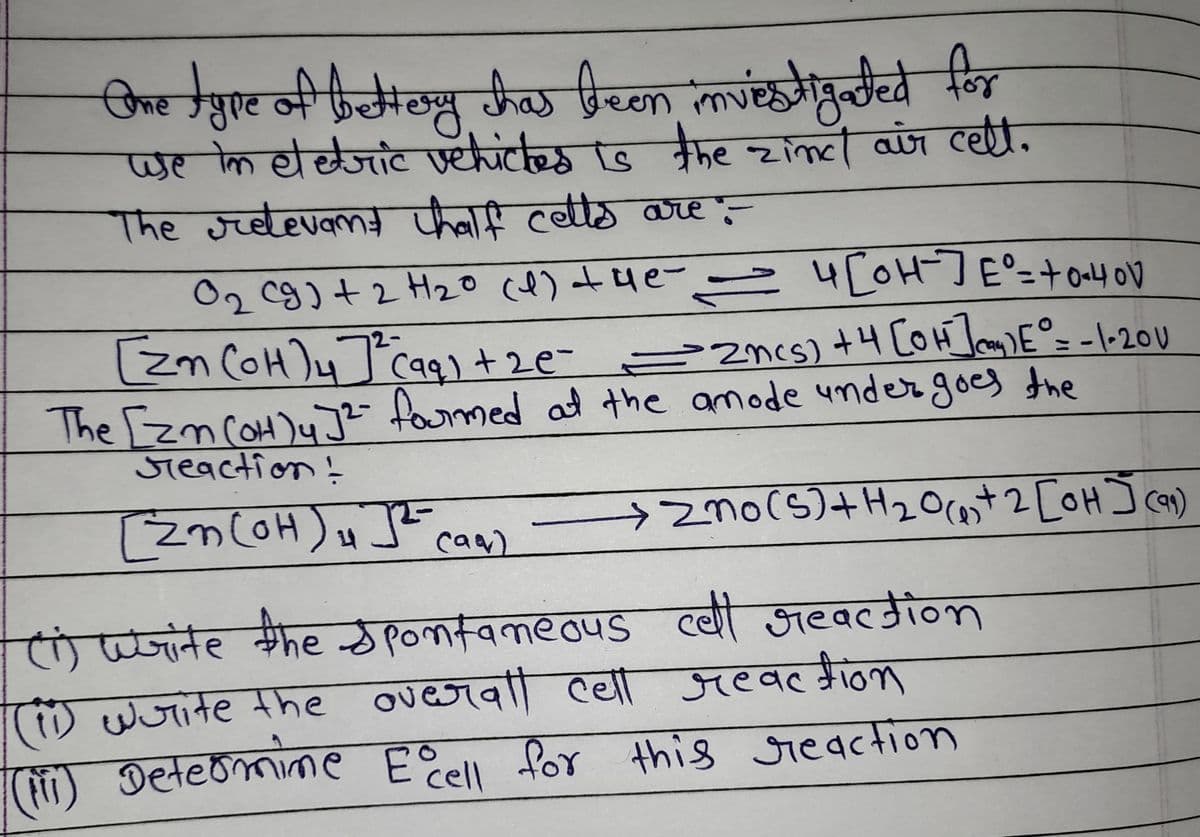 One type of bettery has been investigated for
use in eledric vehicles is the zinc/ air cell.
The relevant half cells are :-
O₂ (g) + 2 H₂O (l) + 4e⁻ ⇌ 4[OH⁻] E° = +0.40V
[Zn(OH)₄]²⁻ (aq) + 2e⁻ ⇌ Zn(s) + 4[OH⁻](aq) E° = -1.20V
The [Zn(OH)₄]²⁻ formed at the anode undergoes the
reaction :
[Zn(OH)₄]²⁻ (aq) → ZnO(s) + H₂O(l) + 2[OH⁻](aq)
(i) Write the spontaneous cell reaction
(ii) write the overall cell reaction
(iii) Determine E°cell for this reaction